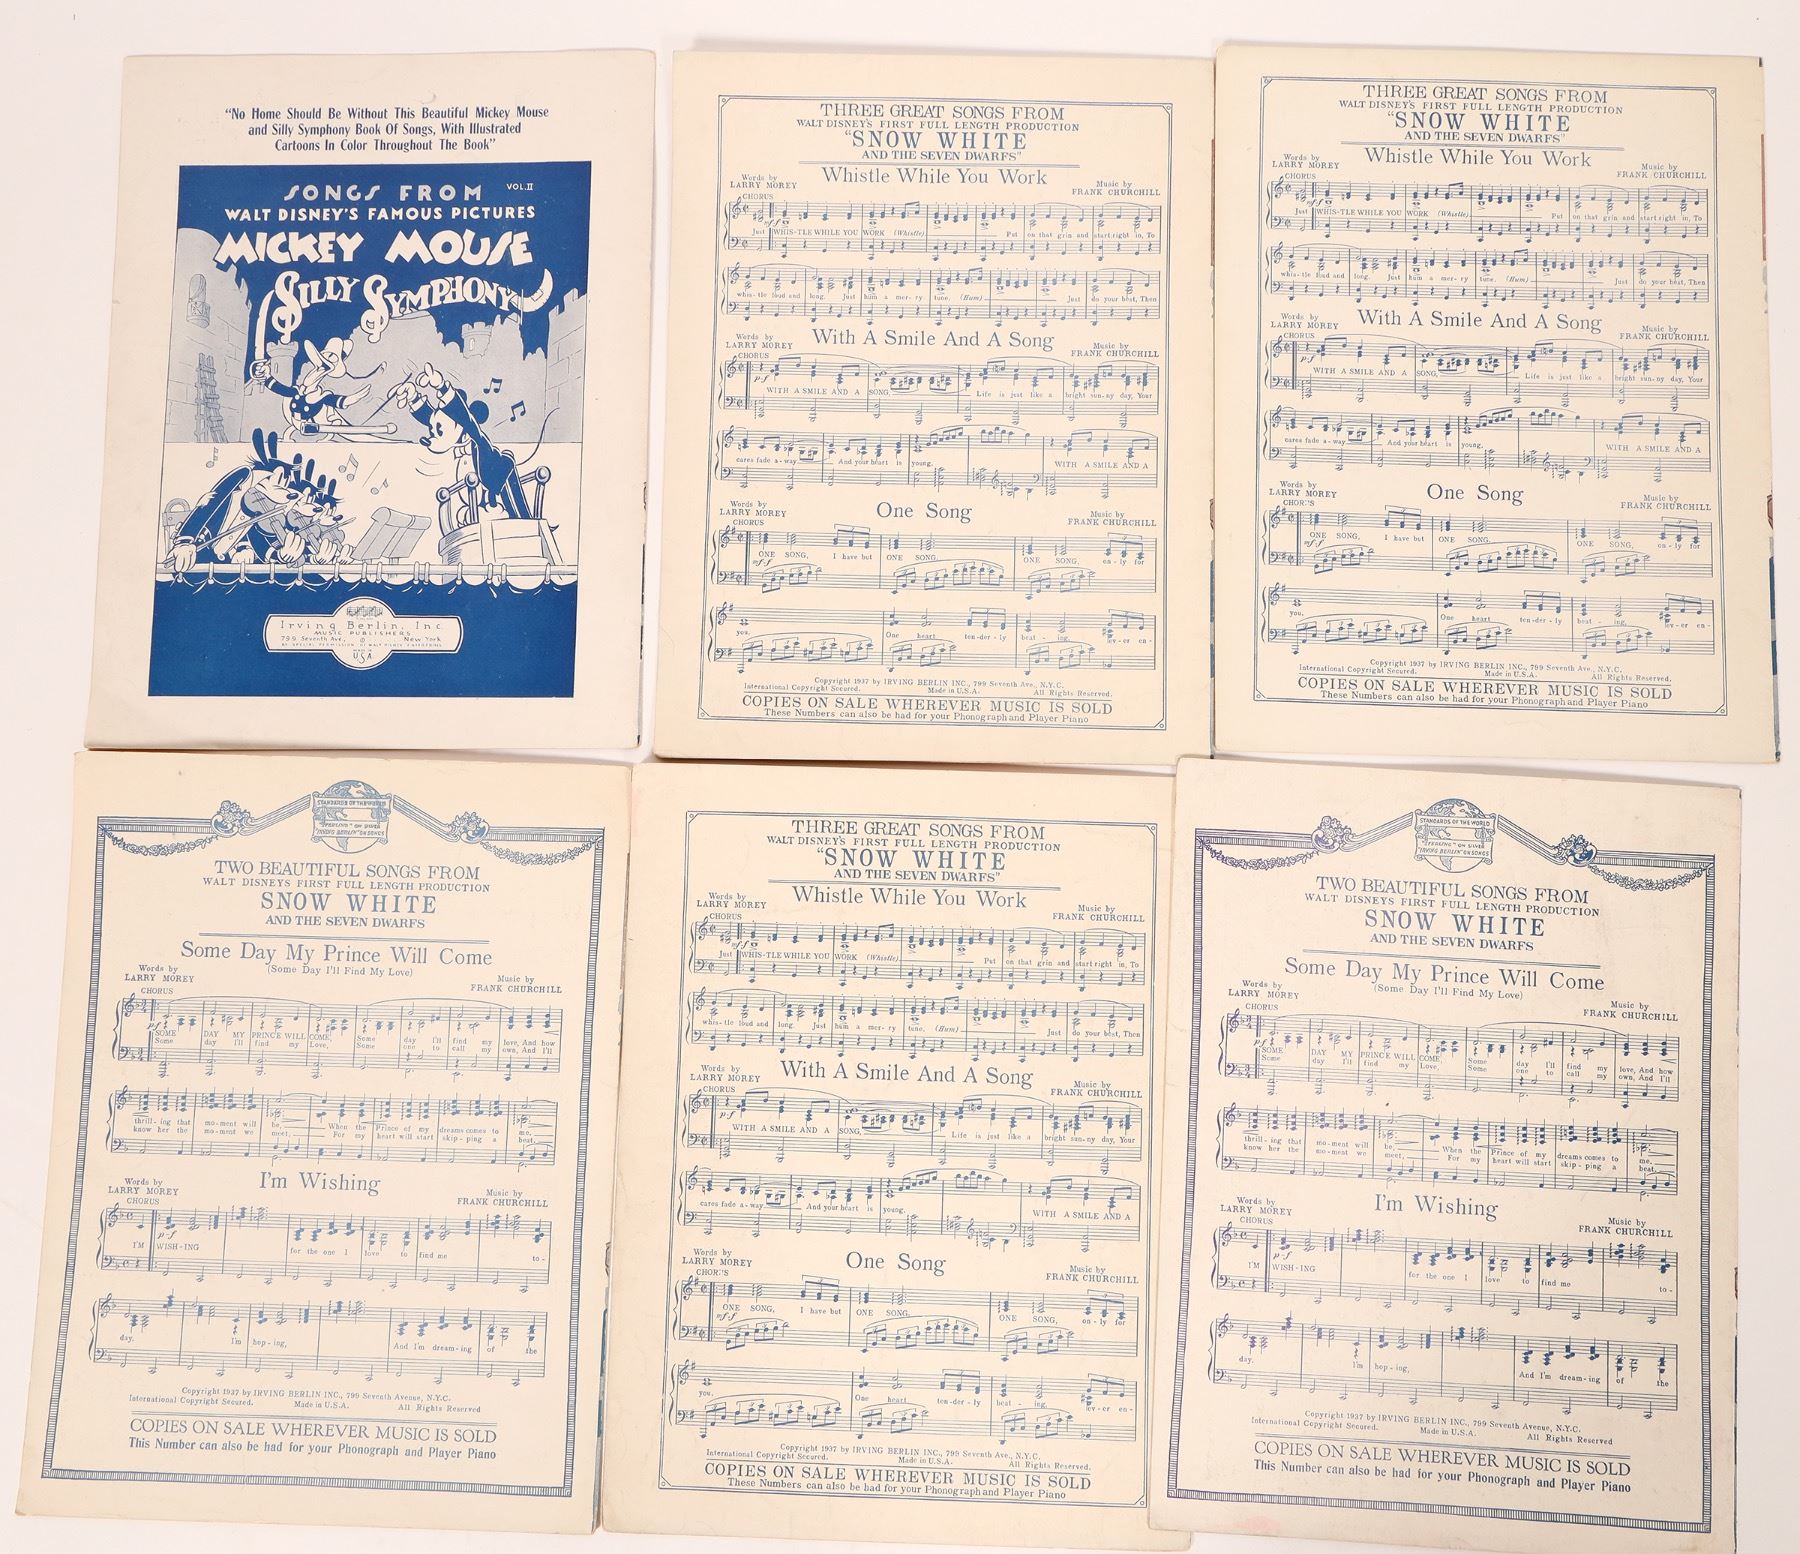 "No Home Should Be Without This Beautiful Mickey Mouse
and Silly Symphony Book Of Songs, With Illustrated
Cartoons In Color Throughout The Book"
SONGS FROM VOL. II
WALT DISNEY'S FAMOUS PICTURES
MICKEY MOUSE
SILLY SYMPHONY
Irving Berlin, Inc.
MUSIC PUBLISHERS
799 Seventh Ave., New York
BY SPECIAL PERMISSION OF WALT DISNEY ENTERPRISES
MADE IN
USA
THREE GREAT SONGS FROM
WALT DISNEY'S FIRST FULL LENGTH PRODUCTION
"SNOW WHITE
AND THE SEVEN DWARFS"
Whistle While You Work
Words by
LARRY MOREY
Music by
FRANK CHURCHILL
CHORUS
Just WHIS-TLE WHILE YOU WORK (Whistle) Put on that grin and start right in, To
whis-tle loud and long. Just hum a mer-ry tune. (Hum) Just do your best, Then
With A Smile And A Song
Words by
LARRY MOREY
Music by
FRANK CHURCHILL
CHORUS
WITH A SMILE AND A SONG, Life is just like a bright sun-ny day, Your
cares fade a-way And your heart is young. WITH A SMILE AND A
One Song
Words by
LARRY MOREY
Music by
FRANK CHURCHILL
CHORUS
ONE SONG, I have but ONE SONG, ONE SONG, on-ly for
you. One heart ten-der-ly beat-ing, ev-er en-
Copyright 1937 by IRVING BERLIN INC., 799 Seventh Ave., N.Y.C.
International Copyright Secured. Made in U.S.A. All Rights Reserved.
COPIES ON SALE WHEREVER MUSIC IS SOLD
These Numbers can also be had for your Phonograph and Player Piano
THREE GREAT SONGS FROM
WALT DISNEY'S FIRST FULL LENGTH PRODUCTION
"SNOW WHITE
AND THE SEVEN DWARFS"
Whistle While You Work
Words by
LARRY MOREY
Music by
FRANK CHURCHILL
CHORUS
Just WHIS-TLE WHILE YOU WORK (Whistle) Put on that grin and start right in, To
whis-tle loud and long. Just hum a mer-ry tune. (Hum) Just do your best, Then
With A Smile And A Song
Words by
LARRY MOREY
Music by
FRANK CHURCHILL
CHORUS
WITH A SMILE AND A SONG, Life is just like a bright sun-ny day, Your
cares fade a-way And your heart is young, WITH A SMILE AND A
One Song
Words by
LARRY MOREY
Music by
FRANK CHURCHILL
CHORUS
ONE SONG, I have but ONE SONG, ONE SONG, on-ly for
you. One heart ten-der-ly beat-ing, ev-er en-
Copyright 1937 by IRVING BERLIN INC., 799 Seventh Ave., N.Y.C.
International Copyright Secured. Made in U.S.A. All Rights Reserved.
COPIES ON SALE WHEREVER MUSIC IS SOLD
These Numbers can also be had for your Phonograph and Player Piano
STANDARDS OF THE WORLD
"STERLING" ON SILVER
"IRVING BERLIN" ON SONGS
TWO BEAUTIFUL SONGS FROM
WALT DISNEYS FIRST FULL LENGTH PRODUCTION
SNOW WHITE
AND THE SEVEN DWARFS
Some Day My Prince Will Come
(Some Day I'll Find My Love)
Words by
LARRY MOREY
Music by
FRANK CHURCHILL
CHORUS
SOME DAY MY PRINCE WILL COME, Some day I'll find my love, And how
Some day I'll find my Love, Some one to call my own, And I'll
thrill-ing that mo-ment will be, When the Prince of my dreams comes to me.
know her the mo-ment we meet, For my heart will start skip-ping a beat.
I'm Wishing
Words by
LARRY MOREY
Music by
FRANK CHURCHILL
CHORUS
I'M WISH-ING for the one I love to find me to-
day. I'm hop-ing, And I'm dream-ing of the
Copyright 1937 by IRVING BERLIN INC., 799 Seventh Avenue, N.Y.C.
International Copyright Secured. Made in U.S.A. All Rights Reserved
COPIES ON SALE WHEREVER MUSIC IS SOLD
This Number can also be had for your Phonograph and Player Piano
THREE GREAT SONGS FROM
WALT DISNEY'S FIRST FULL LENGTH PRODUCTION
"SNOW WHITE
AND THE SEVEN DWARFS"
Whistle While You Work
Words by
LARRY MOREY
Music by
FRANK CHURCHILL
CHORUS
Just WHIS-TLE WHILE YOU WORK (Whistle) Put on that grin and start right in, To
whis-tle loud and long. Just hum a mer-ry tune, (Hum) Just do your best, Then
With A Smile And A Song
Words by
LARRY MOREY
Music by
FRANK CHURCHILL
CHORUS
WITH A SMILE AND A SONG, Life is just like a bright sun-ny day, Your
cares fade a-way And your heart is young, WITH A SMILE AND A
One Song
Words by
LARRY MOREY
Music by
FRANK CHURCHILL
CHORUS
ONE SONG, I have but ONE SONG, ONE SONG, on-ly for
you. One heart ten-der-ly beat-ing, ev-er en-
Copyright 1937 by IRVING BERLIN INC., 799 Seventh Ave., N.Y.C.
International Copyright Secured. Made in U.S.A. All Rights Reserved.
COPIES ON SALE WHEREVER MUSIC IS SOLD
These Numbers can also be had for your Phonograph and Player Piano
STANDARDS OF THE WORLD
"STERLING" ON SILVER
"IRVING BERLIN" ON SONGS
TWO BEAUTIFUL SONGS FROM
WALT DISNEYS FIRST FULL LENGTH PRODUCTION
SNOW WHITE
AND THE SEVEN DWARFS
Some Day My Prince Will Come
(Some Day I'll Find My Love)
Words by
LARRY MOREY
Music by
FRANK CHURCHILL
CHORUS
SOME DAY MY PRINCE WILL COME, Some day I'll find my love, And how
Some day I'll find my Love, Some one to call my own, And I'll
thrill-ing that mo-ment will be, When the Prince of my dreams comes to me.
know her the mo-ment we meet, For my heart will start skip-ping a beat.
I'm Wishing
Words by
LARRY MOREY
Music by
FRANK CHURCHILL
CHORUS
I'M WISH-ING for the one I love to find me to-
day. I'm hop-ing, And I'm dream-ing of the
Copyright 1937 by IRVING BERLIN INC., 799 Seventh Avenue, N.Y.C.
International Copyright Secured. Made in U.S.A. All Rights Reserved
COPIES ON SALE WHEREVER MUSIC IS SOLD
This Number can also be had for your Phonograph and Player Piano